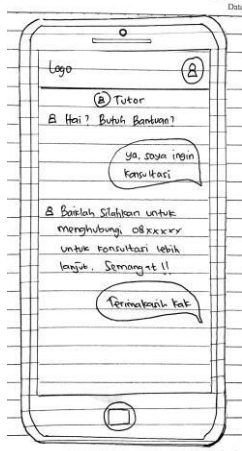 Date
Logo
Tutor
Hai? Butuh Bantuan?
ya, saya ingin
Konsultasi
Baiklah Silahkan untuk
menghubungi 08xxxxx
untuk konsultasi lebih
lanjut. Semangat!!
Terimakasih kak